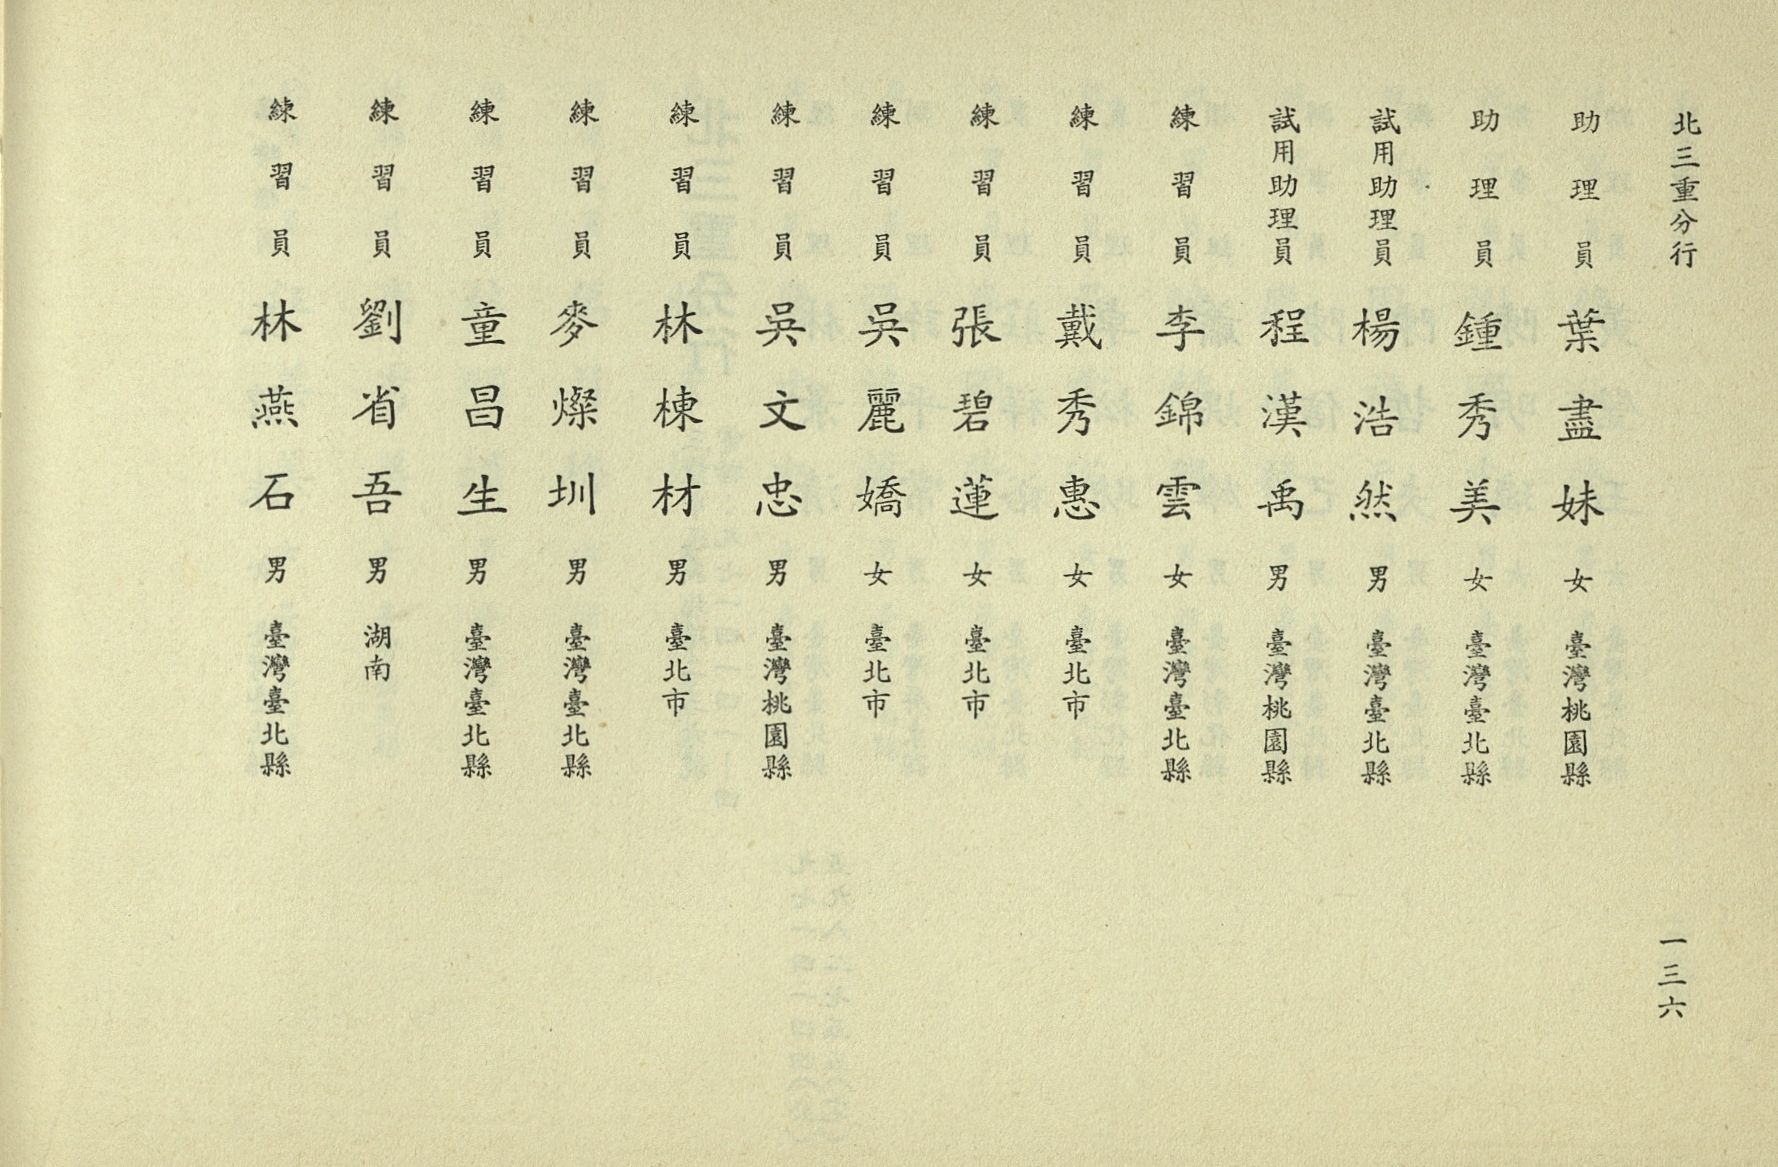 北三重分行
助理員 葉盡妹 女 臺灣桃園縣
助理員 鍾秀美 女 臺灣臺北縣
試用助理員 楊浩然 男 臺灣臺北縣
試用助理員 程漢禹 男 臺灣桃園縣
練習員 李錦雲 女 臺灣臺北縣
練習員 戴秀惠 女 臺北市
練習員 張碧蓮 女 臺北市
練習員 吳麗嬌 女 臺北市
練習員 吳文忠 男 臺灣桃園縣
練習員 林棟材 男 臺北市
練習員 麥燦圳 男 臺灣臺北縣
練習員 童昌生 男 臺灣臺北縣
練習員 劉省吾 男 湖南
練習員 林燕石 男 臺灣臺北縣
一三六